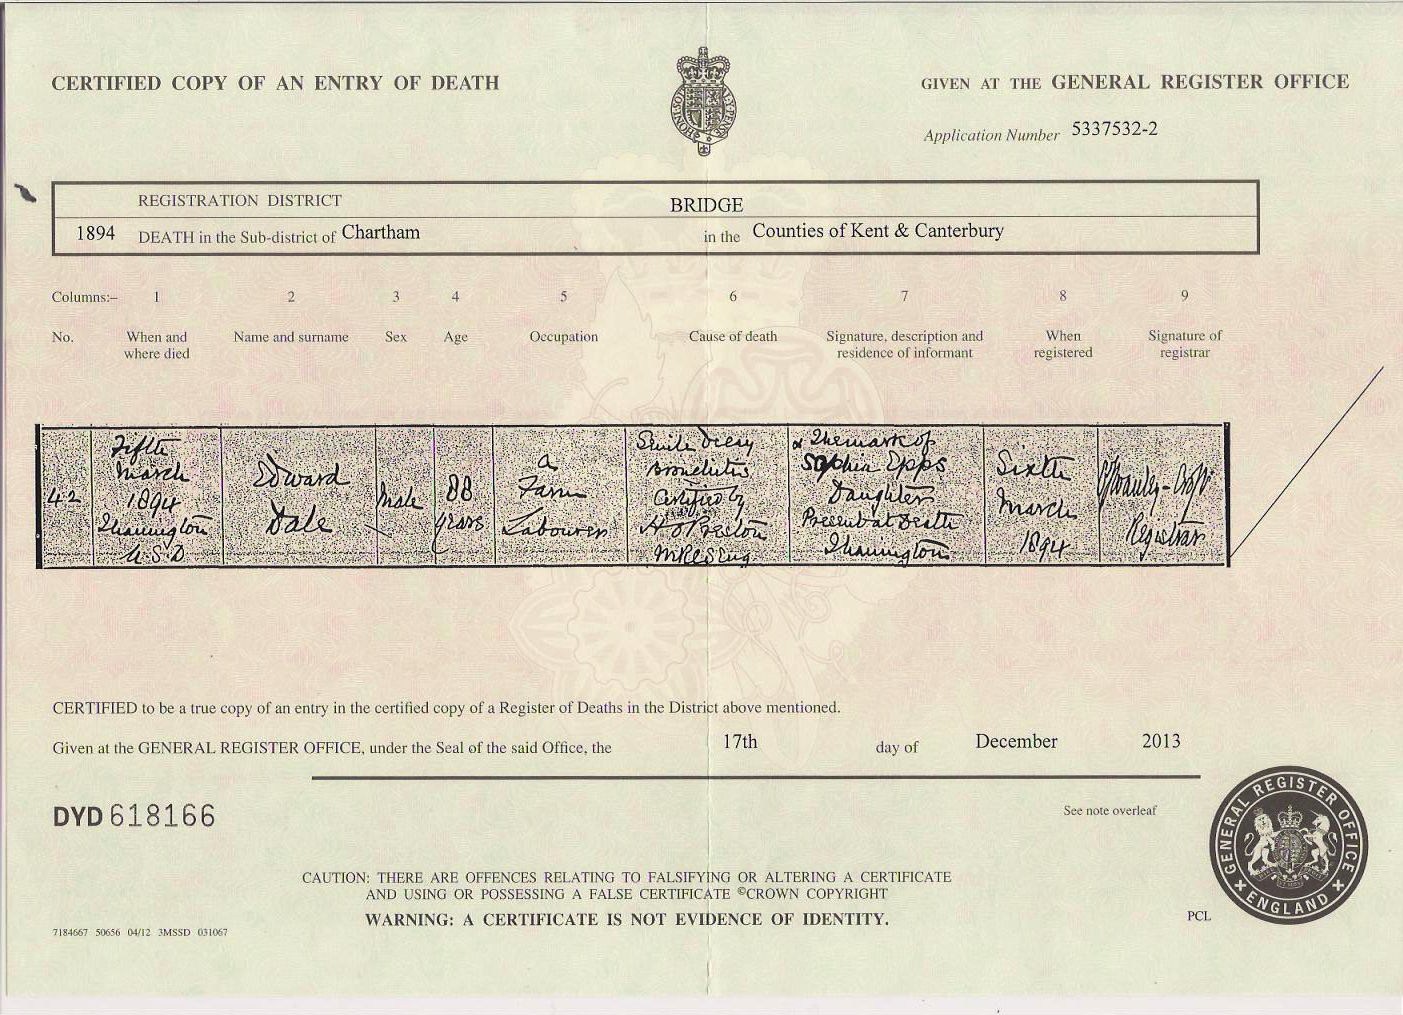 CERTIFIED COPY OF AN ENTRY OF DEATH
GIVEN AT THE GENERAL REGISTER OFFICE
Application Number 5337532-2
REGISTRATION DISTRICT BRIDGE
1894 DEATH in the Sub-district of Chartham in the Counties of Kent & Canterbury
Columns:– 1 2 3 4 5 6 7 8 9
No. When and where died Name and surname Sex Age Occupation Cause of death Signature, description and residence of informant When registered Signature of registrar
42
Fifth
March
1894
Thannington
U.S.D
Edward
Dale
Male
88
years
a
Farm
Labourer
Senile Decay
Bronchitis
Certified by
Preston
MRCS Eng.
The mark of
Sophia Epps
Daughter
Present at Death
Thannington
Sixth
March
1894
Registrar
CERTIFIED to be a true copy of an entry in the certified copy of a Register of Deaths in the District above mentioned.
Given at the GENERAL REGISTER OFFICE, under the Seal of the said Office, the 17th day of December 2013
DYD 618166
See note overleaf
CAUTION: THERE ARE OFFENCES RELATING TO FALSIFYING OR ALTERING A CERTIFICATE
AND USING OR POSSESSING A FALSE CERTIFICATE ©CROWN COPYRIGHT
WARNING: A CERTIFICATE IS NOT EVIDENCE OF IDENTITY.
7184667 50656 04/12 3MSSD 031067
PCL
GENERAL REGISTER OFFICE
ENGLAND